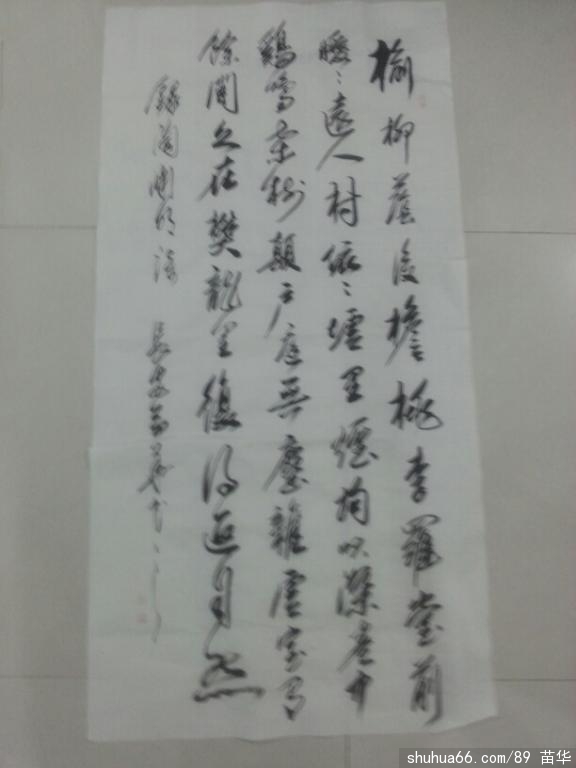 榆柳蔭後檐桃李羅堂前
曖〻遠人村依〻墟里煙狗吠深巷中
鷄鳴桑樹顛戶庭無塵雜虛室有
餘閒久在樊龍里復得返自然
錄陶渊明詩 長安苗華书
shuhua66.com/89 苗华